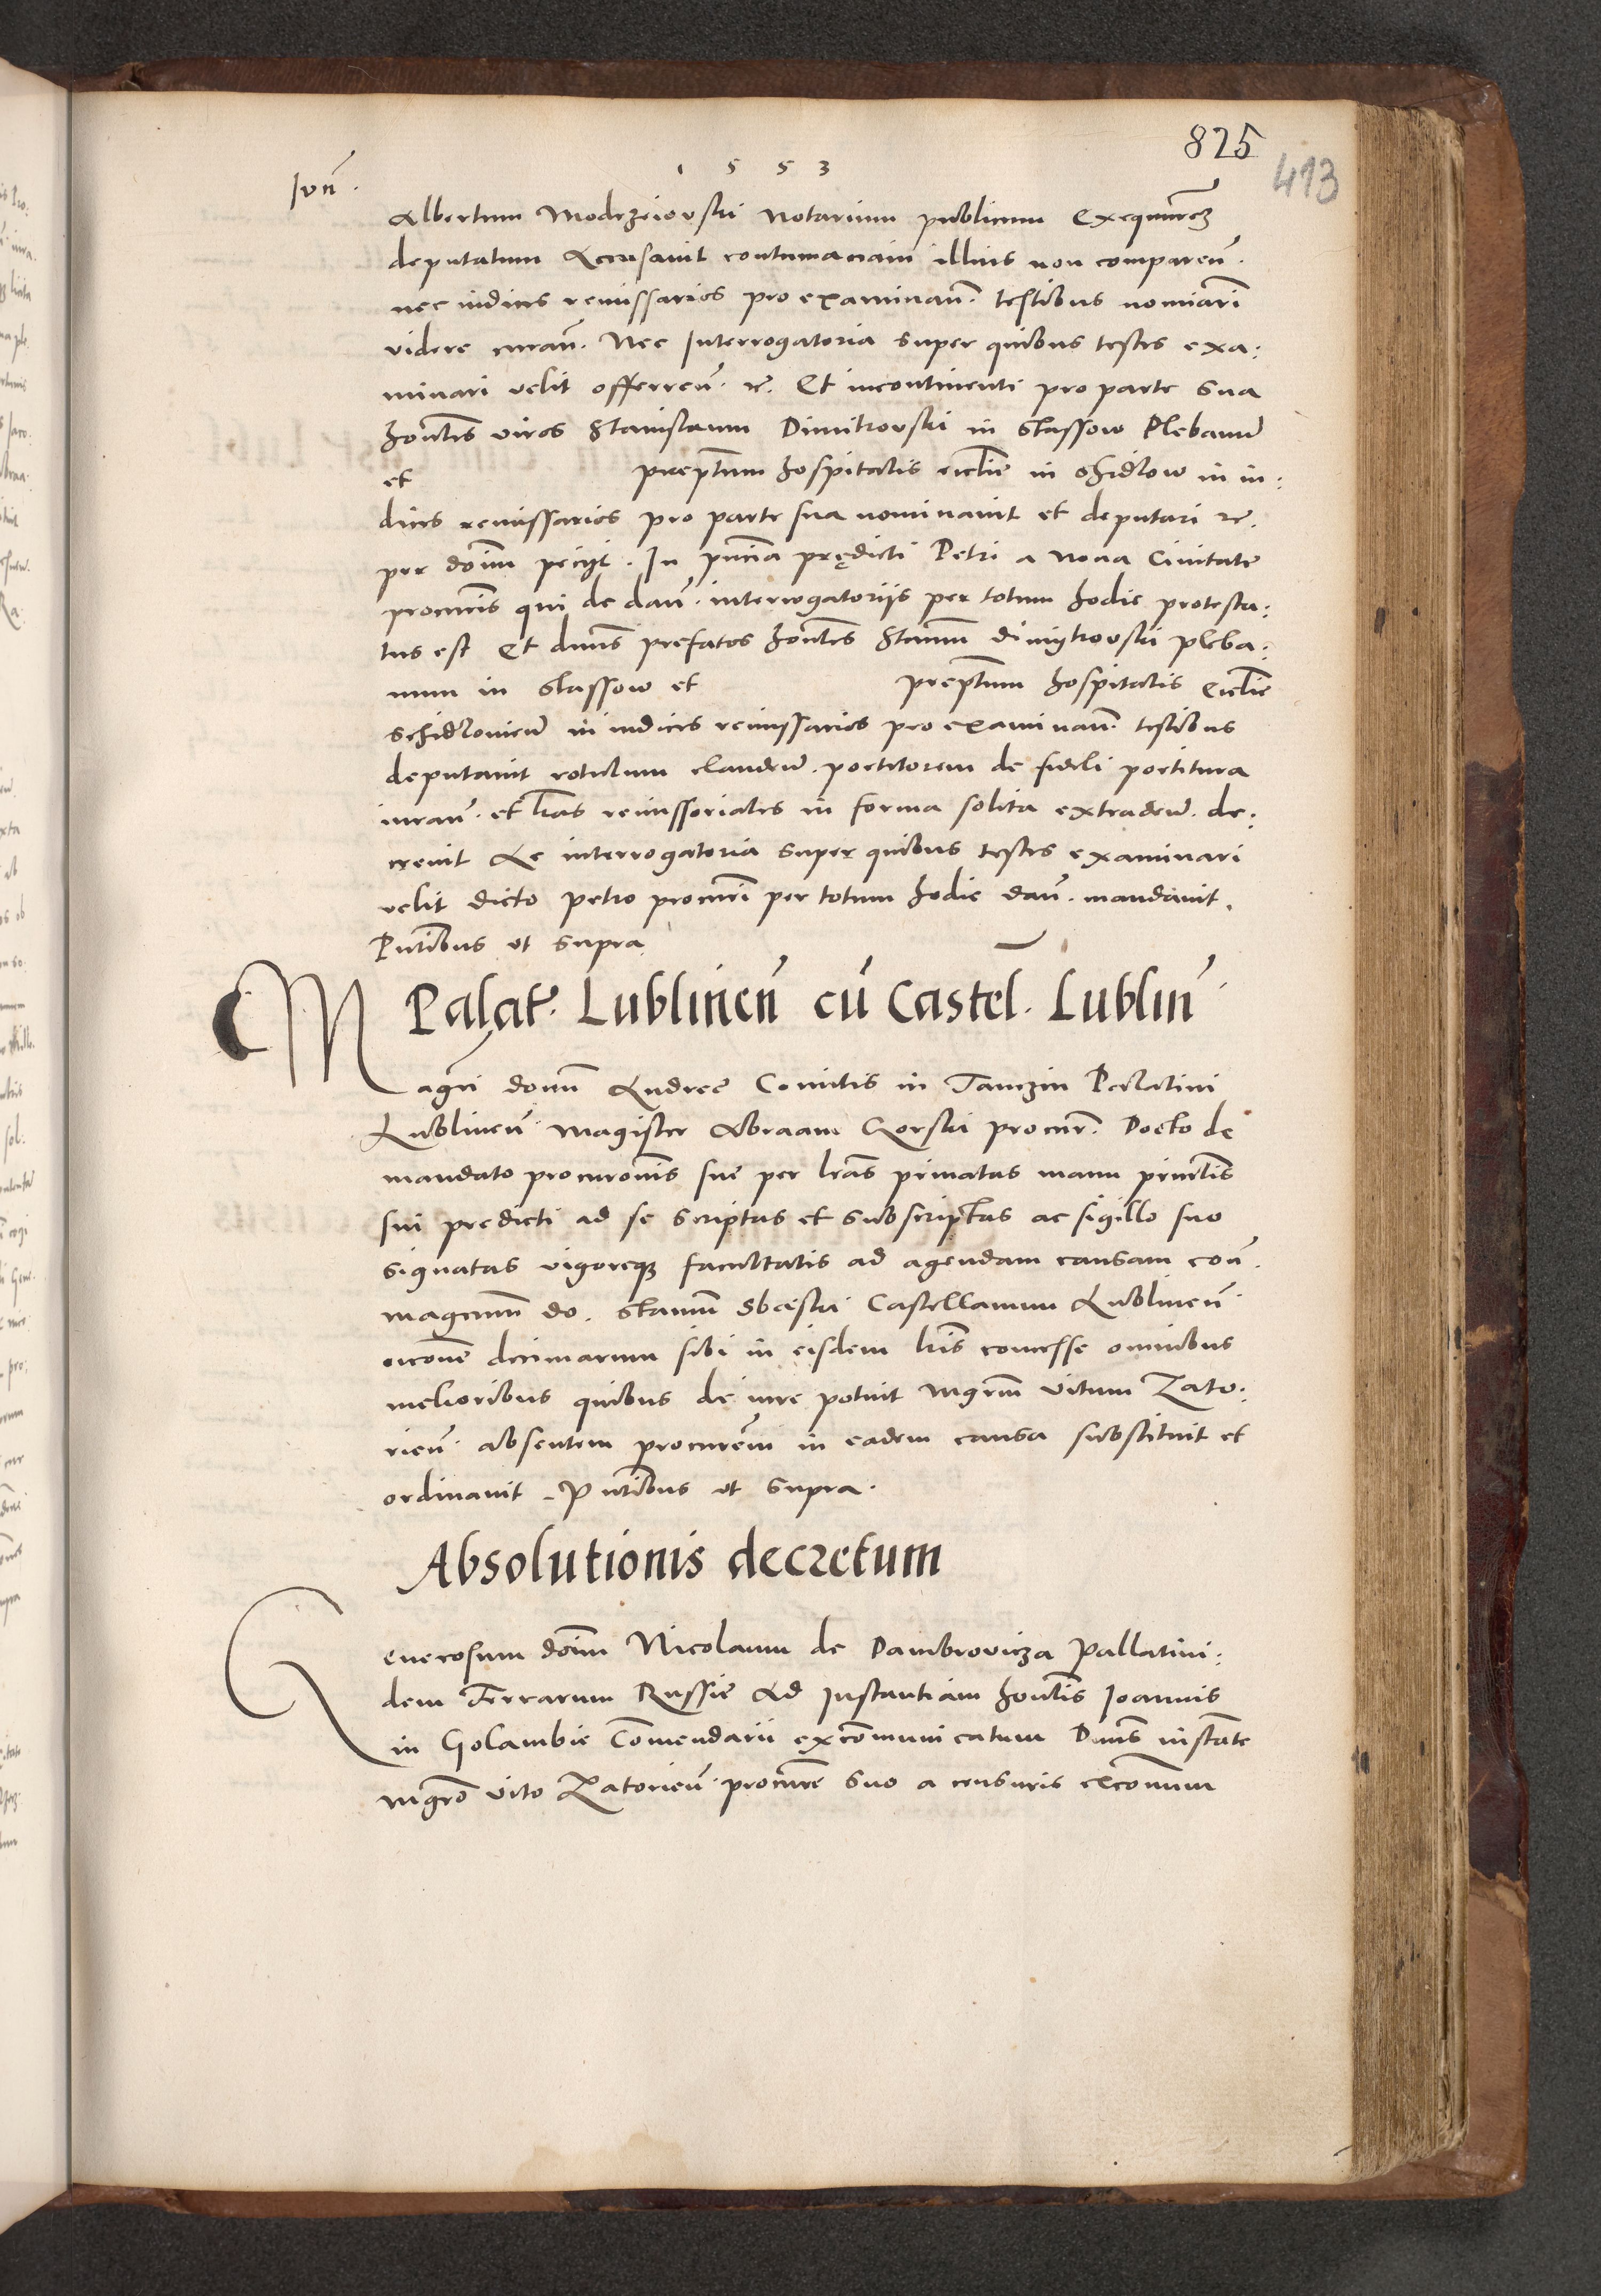 825
413
1553
Iun̄.
Albertum Modrzeiovski Notarium publicum Exequutorem
deputatum Accusavit contumaciam illius non comparen̄.
nec iudices remissarios pro examinan̄. testibus nominari
videre curan̄. Nec Interrogatoria super quibus testes exa:
minari velit offerren̄. etc. Et incontinenti pro parte sua
hon̄les viros Stanislaum Dimitrovski in Stassow Plebanum
et prep̄tum hospitalis ecclie in Shidlow in iu:
dices remissarios pro parte sua nominavit et deputari etc.
per dōinum peciit. In pn̄cia prędicti Petri a Nova Civitate
procuris qui de dan̄. interrogatoriis per totum hodie protesta:
tus est Et dnus prefatos hon̄les Stanm̄ Dimytrovski pleba:
num in Stassow et prep̄tum hospitalis Ecclie
Schidlovien̄ in iudices remissarios pro examinan̄. testibus
deputavit rotulum clauden̄. portitorem de fideli portitura
iuran̄. et lras remissoriales in forma solita extraden̄. de:
crevit Ac interrogatoria super quibus testes examinari
velit dicto Petro procuri per totum hodie dan̄. mandavit.
Pn̄tibus ut supra
Palat. Lublinen̄ cū Castel. Lublin̄
Magci domi Andree Comitis in Tanczin Palatini
Lublinen̄. Magister Abraam Gorski procur. Docto de
mandato procuronis sue per lras privatas manu princilis
sui predicti ad se scriptas et subscriptas ac sigillo suo
signatas vigoreque facultatis ad agendam causam con̄.
magcum do. Stanm̄ Sbąski Castellanum Lublinen̄.
occone decimarum sibi in eisdem lris concesse omnibus
melioribus quibus de iure potuit Mgrm Vitum Zato:
rien̄. absentem procurem in eadem causa substituit et
ordinavit. Pn̄tibus ut supra.
Absolutionis decretum
Generosum doim̄ Nicolaum de Dambrovicza Pallatini:
dem Terrarum Russie Ad Instantiam hon̄lis Ioannis
in Golambie Com̄endarii excōmunicatum Dnus instāte
Mgro Vito Zatorien̄. procure suo a censuris